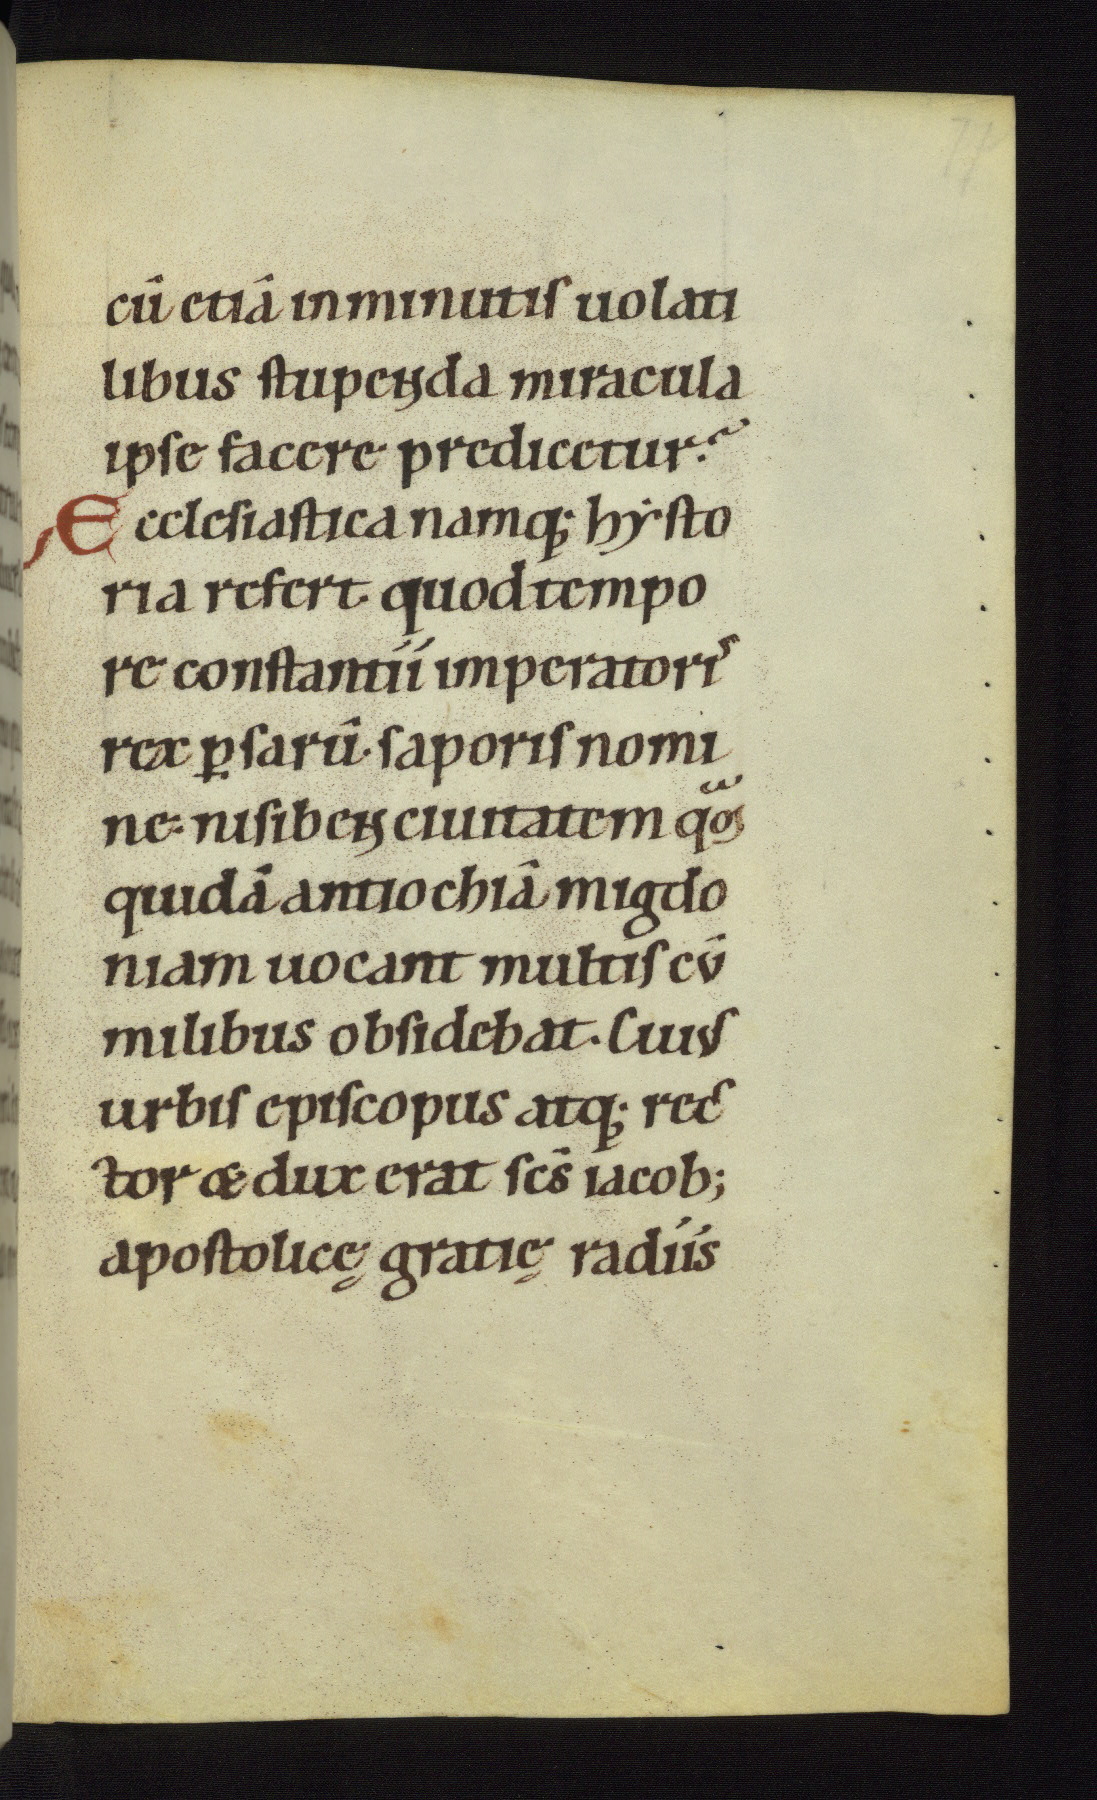 cū etiā in minutis uolati
libus stupenda miracula
ipse facere predicetur?
Ecclesiastica namq; hẏsto
ria refert quod tempo
re constantíí imperatoris
rex ꝑsarū. saporis nomi
ne. nisiben ciuitatem
quidā antiochiā migdo
niam uocant multis cū
milibus obsidebat. Cuius
urbis episcopus atq; rec
tor & dux erat scs̄ iacob;
apostolicę gratię radíís